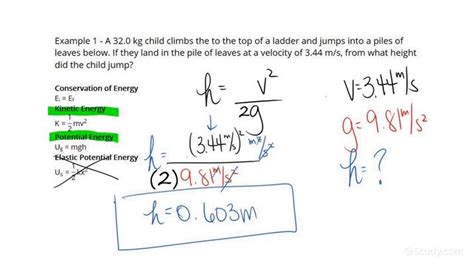 Example 1 - A 32.0 kg child climbs the to the top of a ladder and jumps into a piles of
leaves below. If they land in the pile of leaves at a velocity of 3.44 m/s, from what height
did the child jump?
Conservation of Energy
Eᵢ = E_f
Kinetic Energy
K = 1/2 mv²
Potential Energy
U_g = mgh
Elastic Potential Energy
U_s = 1/2 kx²
h = v²/2g
↓
h = (3.44 m/s)² m²/s² / (2) 9.81 m/s²
h = 0.603m
V = 3.44 m/s
g = 9.81 m/s²
h = ?
Study.com